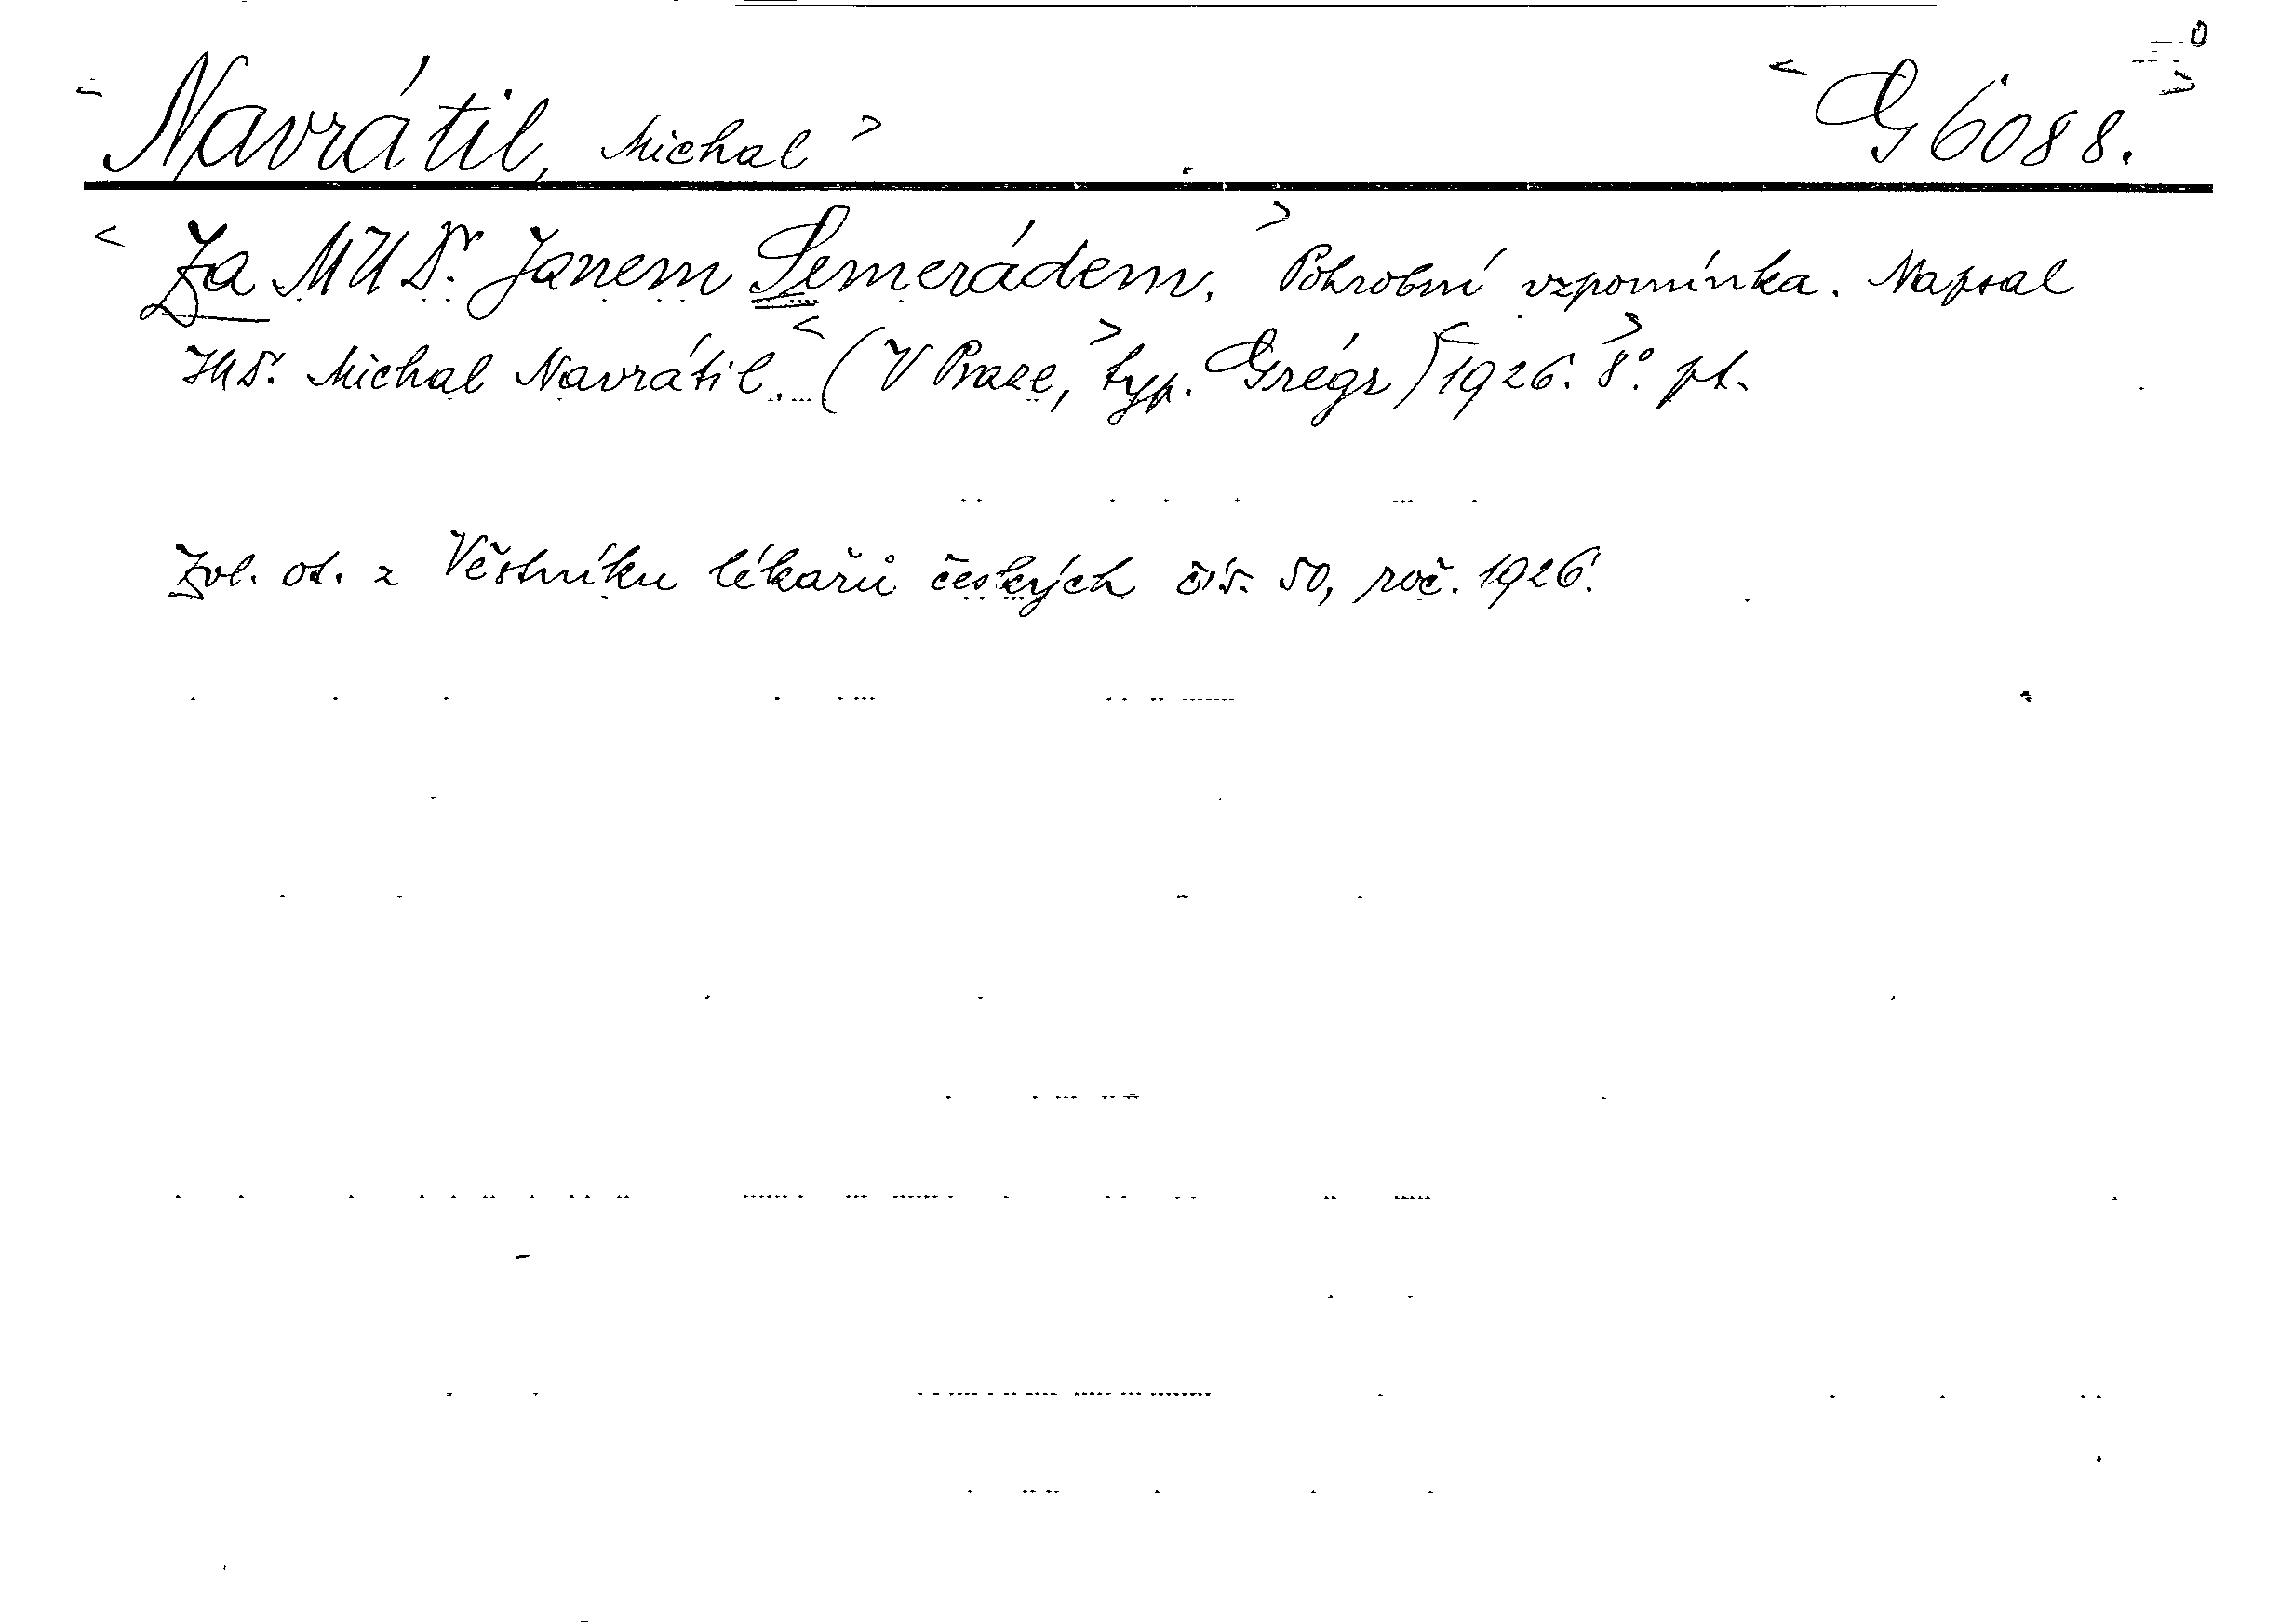 Navrátil, Michal G 6088.
Za MUDr. Janem Semerádem. Pohrobní vzpomínka. Napsal
JUDr. Michal Navrátil. (V Praze, typ. Grégr) 1926. 8°. pt.
Zvl. ot. z Věstníku lékařů českých čís. 50, roč. 1926.